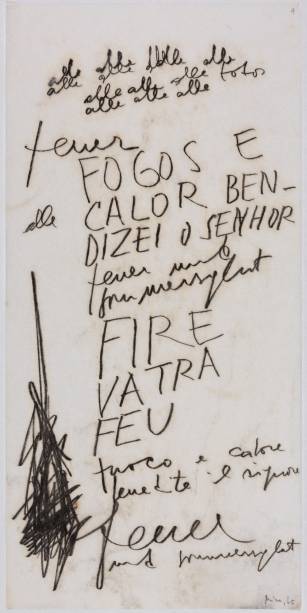 alle alle alle alle
alle alle alle alle fotos
alle alle alle
alle alle alle
feuer
FOGOS E
alle CALOR BEN-
DIZEI O SENHOR
feuer und
sommersglut
FIRE
VATRA
FEU
fuoco e calore
benedite il signore
feuer
und sommersglut